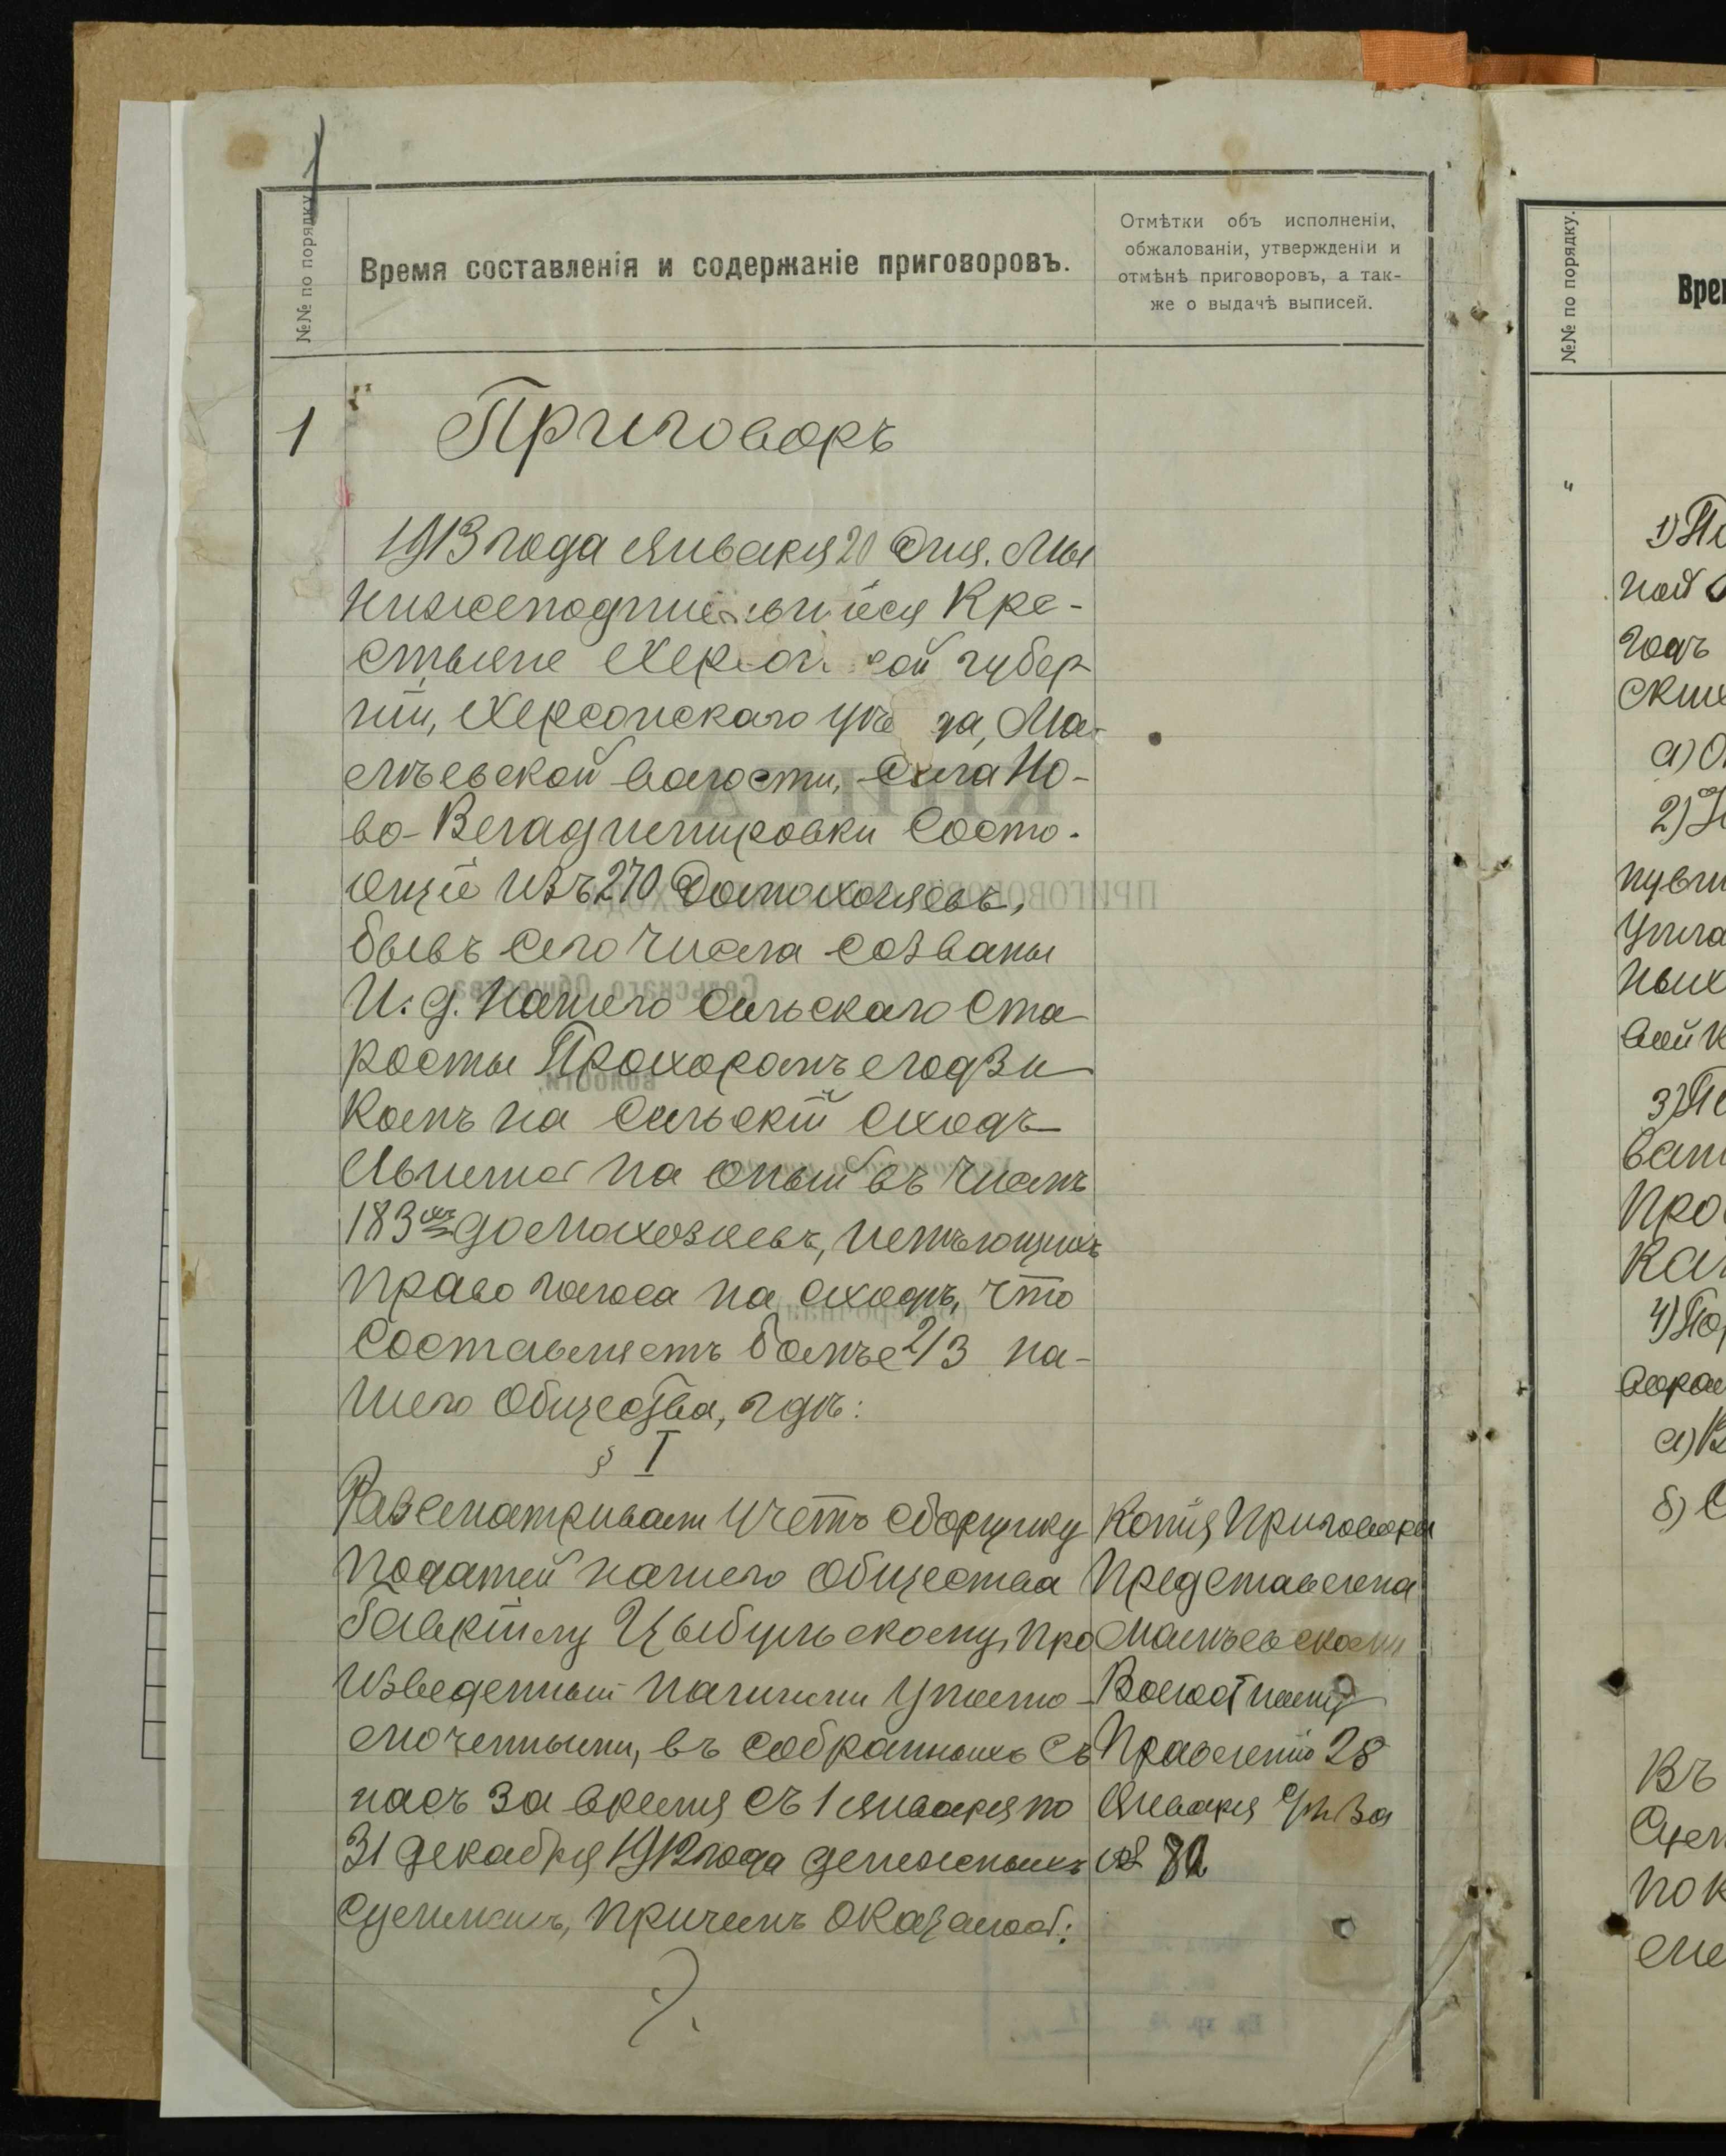 №№ по порядку.
Время составленія и содержаніе приговоровъ.
Отмѣтки объ исполненіи,
обжалованіи, утвержденіи и
отмѣнѣ приговоровъ, а так-
же о выдачѣ выписей.
1
Приговоръ
1913 года Января 20 дня. Мы
нижеподпис шіеся Кре-
стьяне Херсонской губер
ніи, Херсонскаго уѣзда, Ма-
лѣевской волости, Села Но-
во-Владимировки Состо-
ющіе изъ 270 Домохозяевъ,
бывъ сего числа созваны
И. д. Нашего Сельскаго Ста
росты Прохоромъ
комъ на Сельскій Сходъ
Явились на оный въ числѣ
183хъ домохозяевъ, имѣющихъ
право голоса на сходѣ, что
Составляетъ болѣе 2/3 на-
шего Общества, гдѣ:
§ I
Разсматривали Учетъ сборщику
податей нашего Общества
Гавріилу Цыбульскому, про
изведенный нашими Уполно-
моченными, въ собранныхъ съ
насъ за время съ 1 января по
31 декабря 1912 года денежныхъ
суммахъ, причемъ оказалось:
Копія Приговора
Представлена
Малѣевскому
Волостному
Правленію 28
Января с/г за
№ 82
№№ по порядку.
Врем
"
1) По
ной
годъ
ских
а)
2)
ныхъ
3)
вам
Про
Ка
4) По
а) В
б) С
Въ
Сум
пок